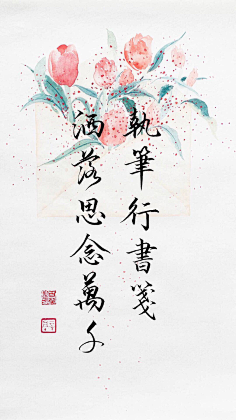 執筆行書箋
洒落思念萬千